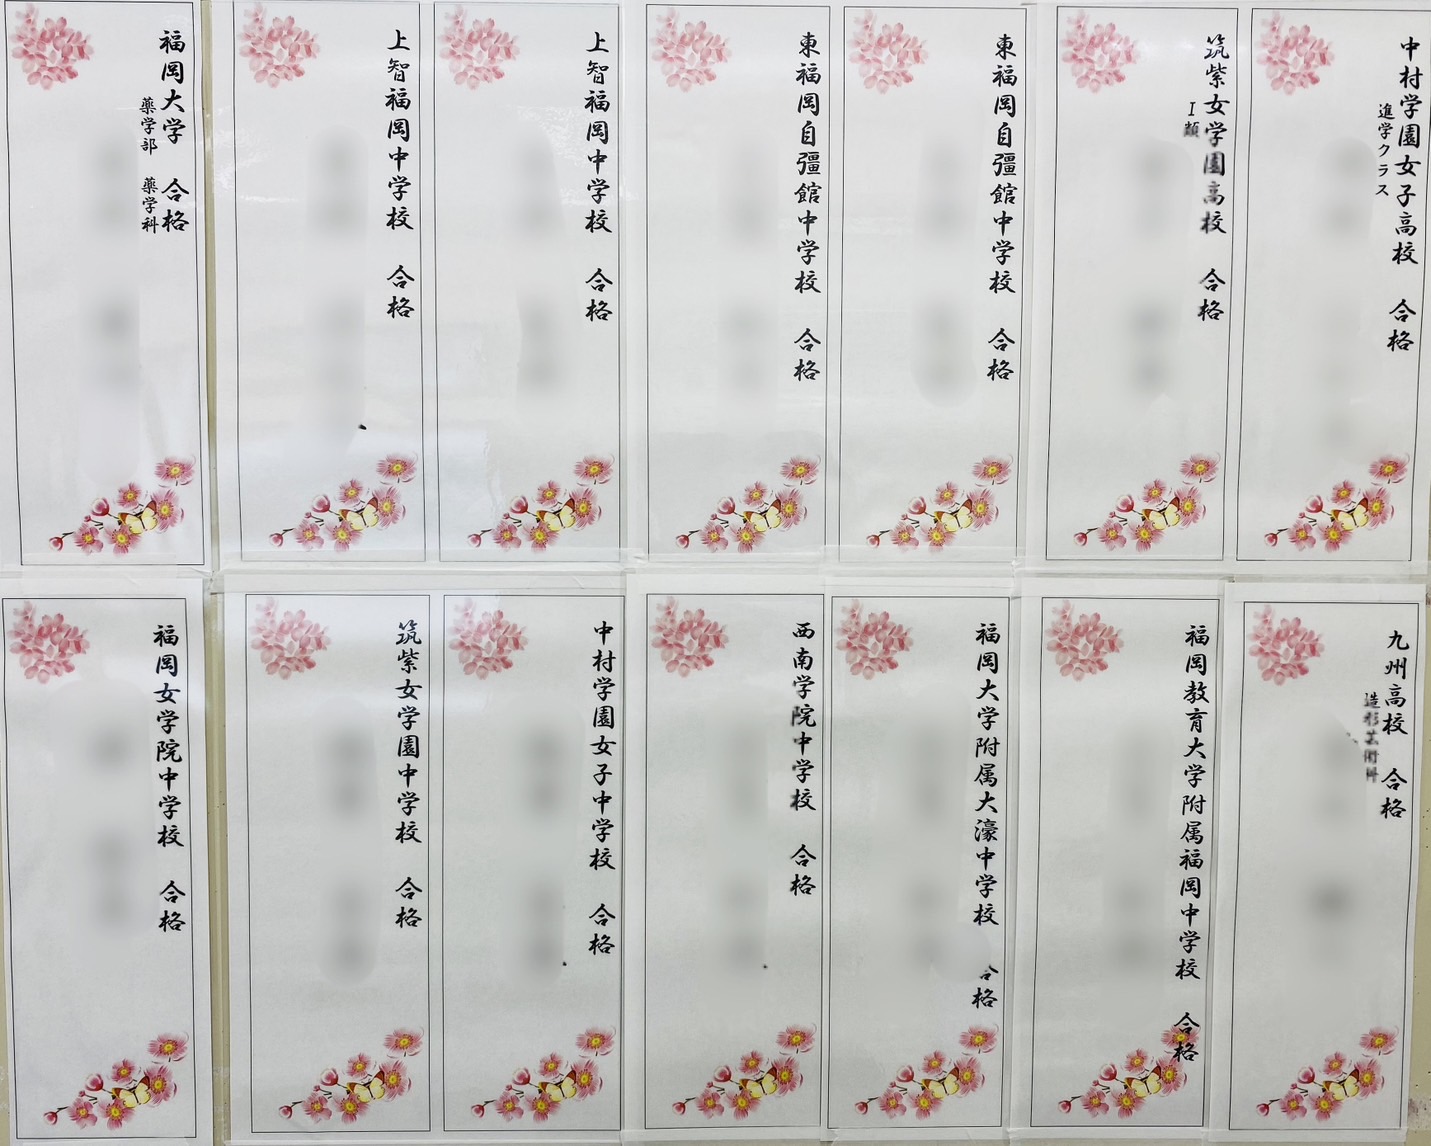 中村学園女子高校 合格
進学クラス
筑紫女学園高校 合格
Ⅰ類
東福岡自彊館中学校 合格
東福岡自彊館中学校 合格
上智福岡中学校 合格
上智福岡中学校 合格
福岡大学 合格
薬学部 薬学科
九州高校 合格
造形芸術科
福岡教育大学附属福岡中学校 合格
福岡大学附属大濠中学校 合格
西南学院中学校 合格
中村学園女子中学校 合格
筑紫女学園中学校 合格
福岡女学院中学校 合格